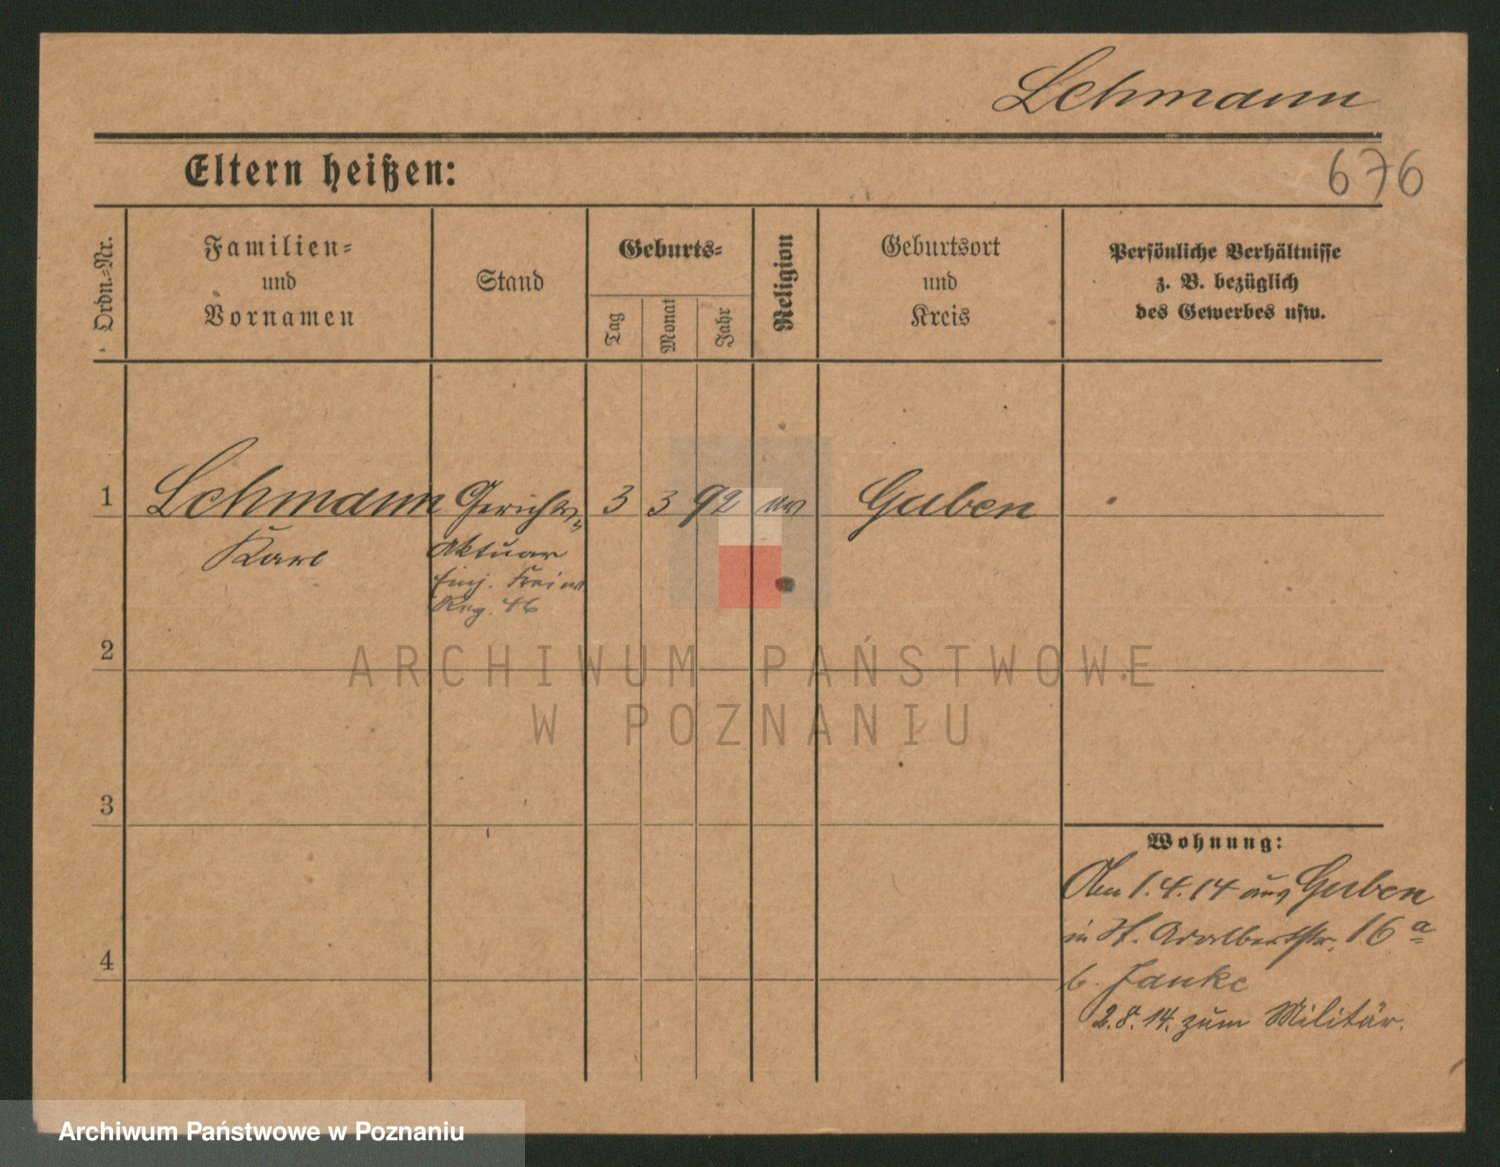 Lehmann
Eltern heißen:
676
Ordn.-Nr.
Familien-
und
Vornamen
Stand
Geburts-
Tag
Monat
Jahr
Religion
Geburtsort
und
Kreis
Persönliche Verhältnisse
z. B. bezüglich
des Gewerbes usw.
1 Lehmann Gerichts- 3 3 92 ev Guben
Karl Aktuar
Einj. Freiw.
Reg. 46
2
ARCHIWUM PAŃSTWOWE
W POZNANIU
3
Wohnung:
Am 1.4.14 aus Guben
in St. Adalbertstr. 16 a
4
b. Janke
2.8.14. zum Militär.
Archiwum Państwowe w Poznaniu